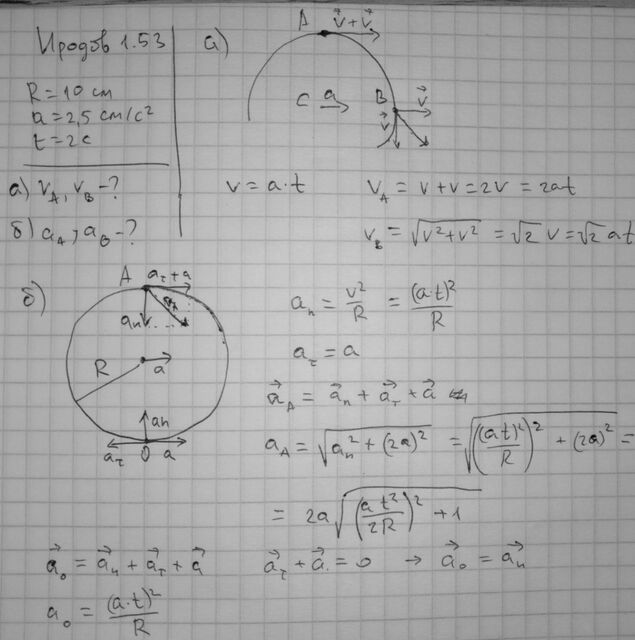 Иродов 1.53
R = 10 см
a = 2,5 см/с²
t = 2с
а) v_A, v_B - ?
б) a_A, a_B - ?
а)
A v⃗+v⃗
C a⃗ B v⃗
v⃗
v = a·t v_A = v + v = 2v = 2at
v_B = √(v²+v²) = √2 v = √2 at
б)
A a_τ + a
a_n a_A
R a⃗
a_n
a⃗_τ O a⃗
a_n = v²/R = (a·t)²/R
a_τ = a
a⃗_A = a⃗_n + a⃗_τ + a⃗
a_A = √(a_n² + (2a)²) = √(((at)²/R)² + (2a)²) =
= 2a √((at²/2R)² + 1)
a⃗_o = a⃗_n + a⃗_τ + a⃗ a⃗_τ + a⃗ = 0 → a⃗_o = a⃗_n
a_o = (a·t)²/R